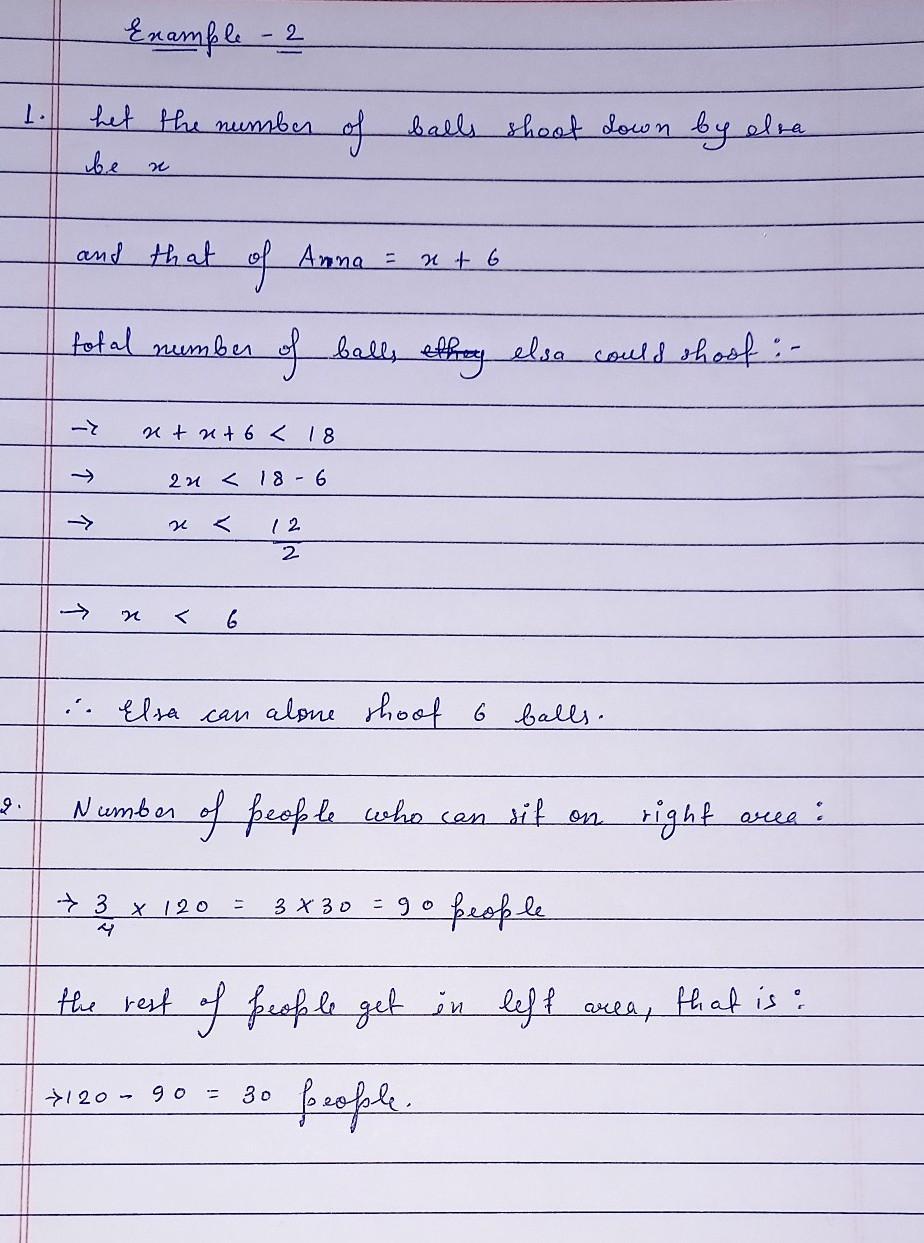 Example - 2
1. Let the number of balls shoot down by elsa
be x
and that of Anna = x + 6
total number of balls elsa could shoot :-
→ x + x + 6 < 18
→ 2x < 18 - 6
→ x < 12/2
→ x < 6
∴ Elsa can alone shoot 6 balls.
2. Number of people who can sit on right area :
→ 3/4 × 120 = 3 × 30 = 90 people
the rest of people get in left area, that is :
→ 120 - 90 = 30 people.